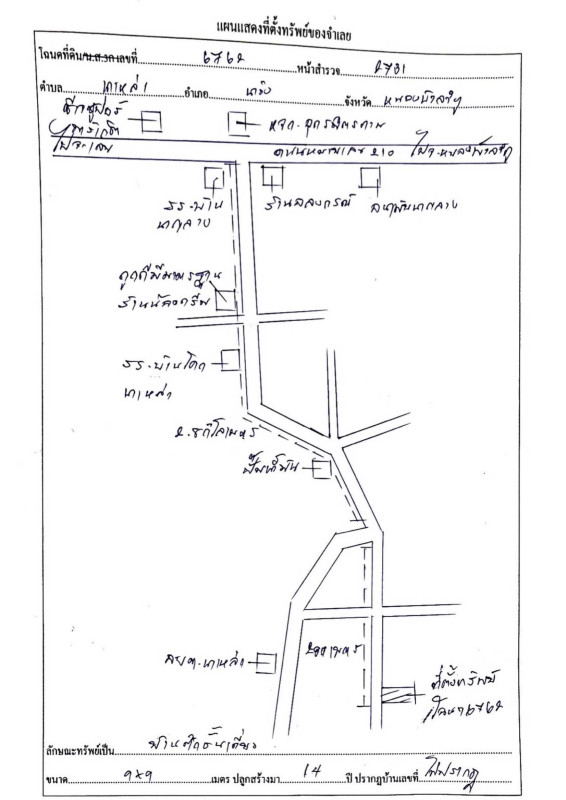 แผนแสดงที่ตั้งทรัพย์ของจำเลย
โฉนดที่ดิน/น.ส.3ก เลขที่ 6762 หน้าสำรวจ 2731
ตำบล นาเหล่า อำเภอ นาวัง จังหวัด หนองบัวลำภู
ตึกซูเปอร์
หจก.อุดรมิตรภาพ
ไปจ.เลย ถนนหมายเลข 210 ไปจ.หนองบัวลำภู
รร.บ้าน
นากลาง
ร้านลลงกรณ์
สหพันนากลาง
ร้าน
รร.บ้านโคก
นาเหล่า
2.8 กิโลเมตร
ปั๊มน้ำมัน
อบต.นาเหล่า
200 เมตร
ที่ตั้งทรัพย์
โฉนด 6762
ลักษณะทรัพย์เป็น บ้านตึกชั้นเดียว
ขนาด 9x9 เมตร ปลูกสร้างมา 14 ปี ปรากฏบ้านเลขที่ ไม่ปรากฏ